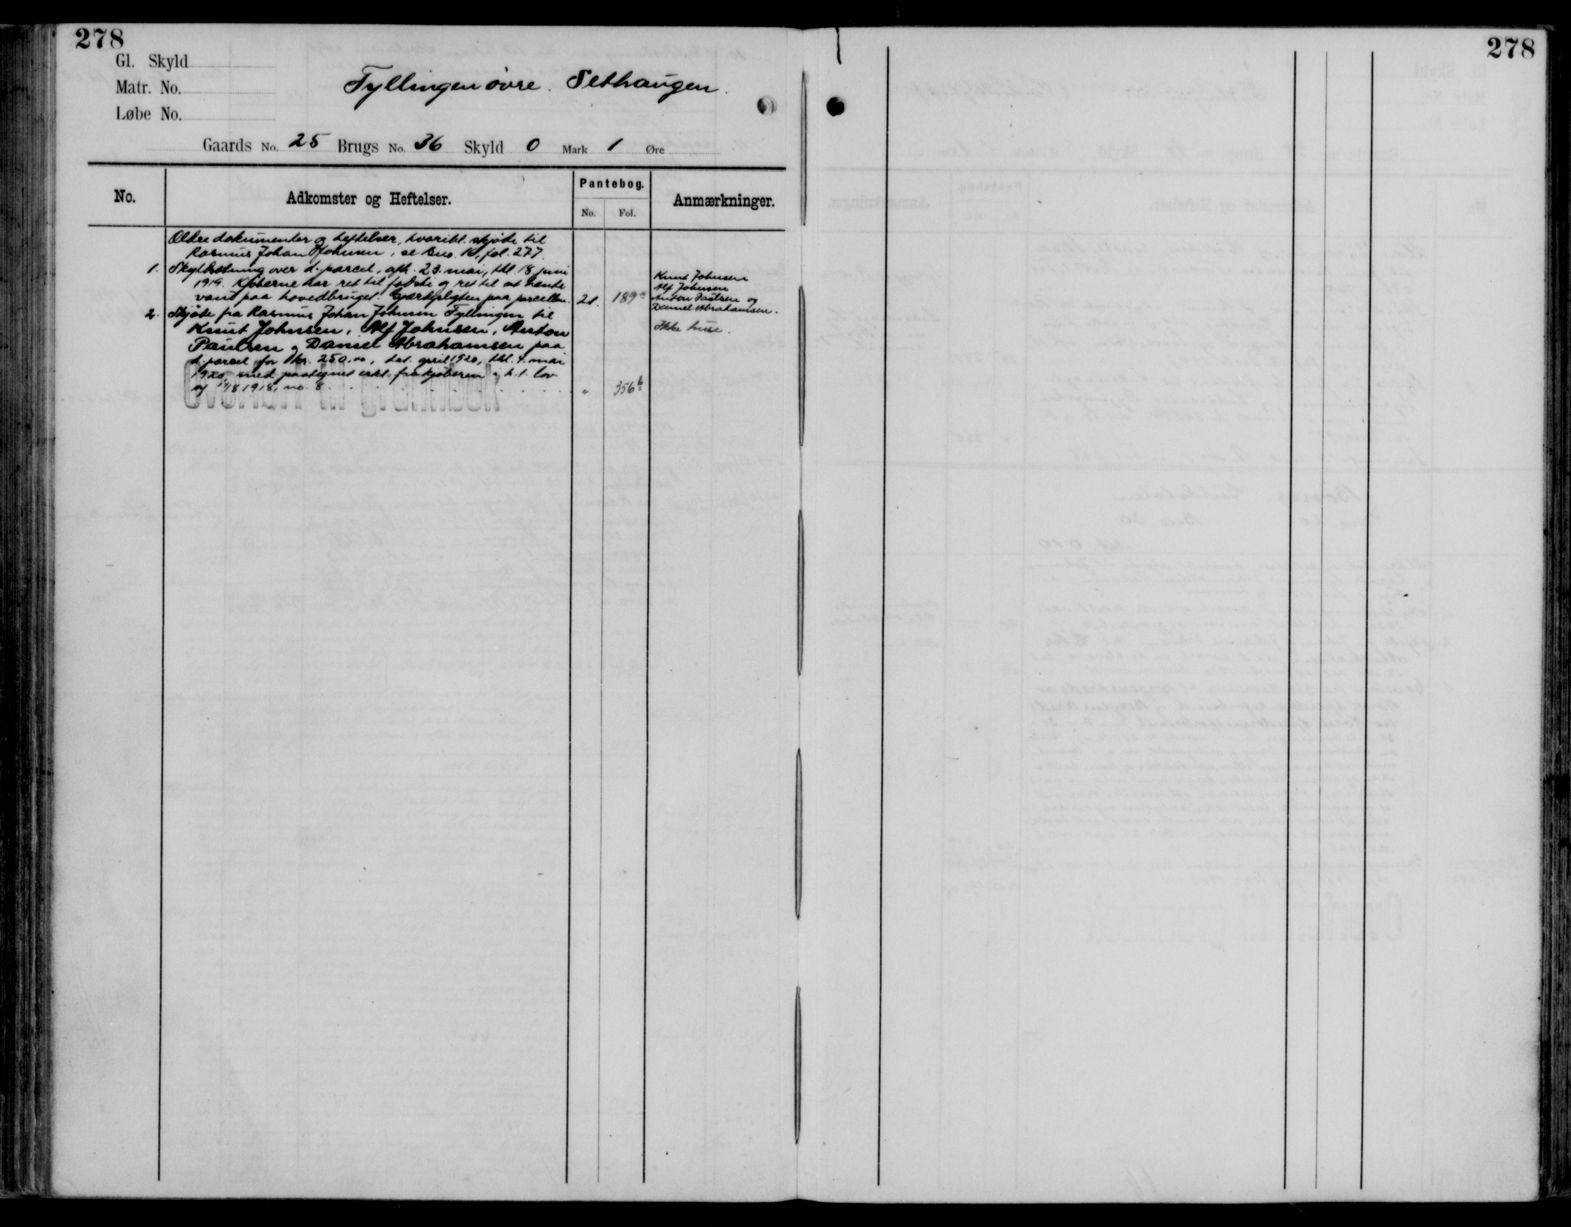 278
278
Gl. Skyld
Matr. No.
Løbe No.
Tyllingen övre. Sethaugen.
Gaards No. 25 Brugs No. 36 Skyld 0 Mark 1 Øre
No.
Adkomster og Heftelser.
Pantebog.
No.
Fol.
Anmærkninger.
Ældre dokumenter og heftelser, hvoribl. skjöde til
Rasmus Johan Johnsen, se Bno. 10, fol. 277.
1. Skyldsætning over d. parcel, afh. 23. mai, tbl. 18 juni
1919. Kjöberne har ret til fædrift og ret til at hente
vand paa hovedbruget. Gjærdepligten paa parcellen. 21. 189
2. Skjöde fra Rasmus Johan Johnsen Tyllingen til
Knut Johnsen, Alf Johnsen, Anton
Paulsen og Daniel Abrahamsen paa
d. parcel for kr. 250,00, dat. april 1920, tbl. 4. mai
1920, med paategnet erkl. fra kjöberen i h. t. lov
af 16/8 1918, no. 8 " 356 b
Knut Johnsen
Alf Johnsen
Anton Paulsen og
Daniel Abrahamsen.
Ikke huse.
Overført til grunnbok